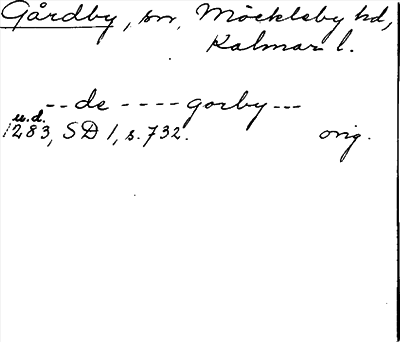 Gårdby, sn, Möckleby hd,
Kalmar l.
--de ----gorby---
u.d.
1283, SD 1, s. 732. orig.